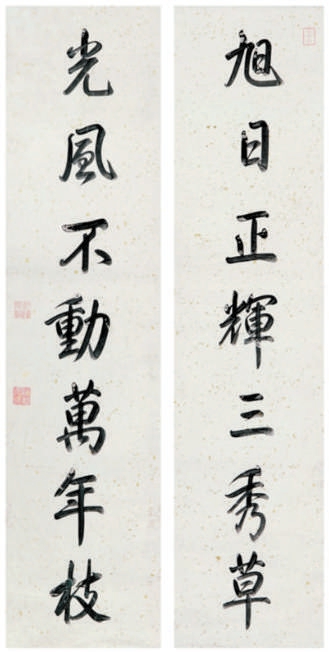 旭日正輝三秀草
光風不動萬年枝